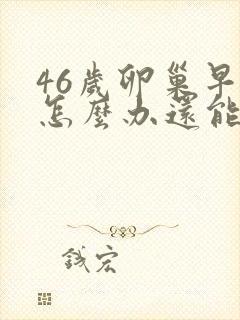 46歲卵巢早
怎麼办還能
錢宏